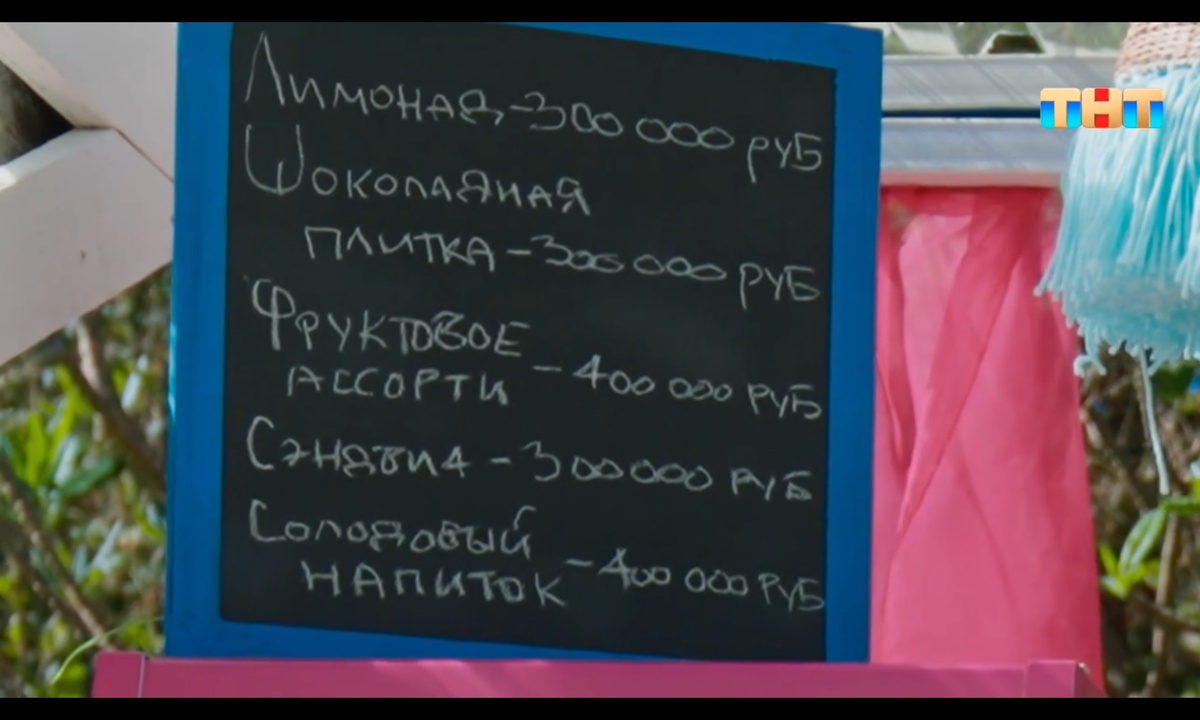 ТНТ
Лимонад - 300 000 руб
Шоколадная
плитка - 300 000 руб
Фруктовое
ассорти - 400 000 руб
Сэндвич - 300 000 руб
Солодовый
напиток - 400 000 руб